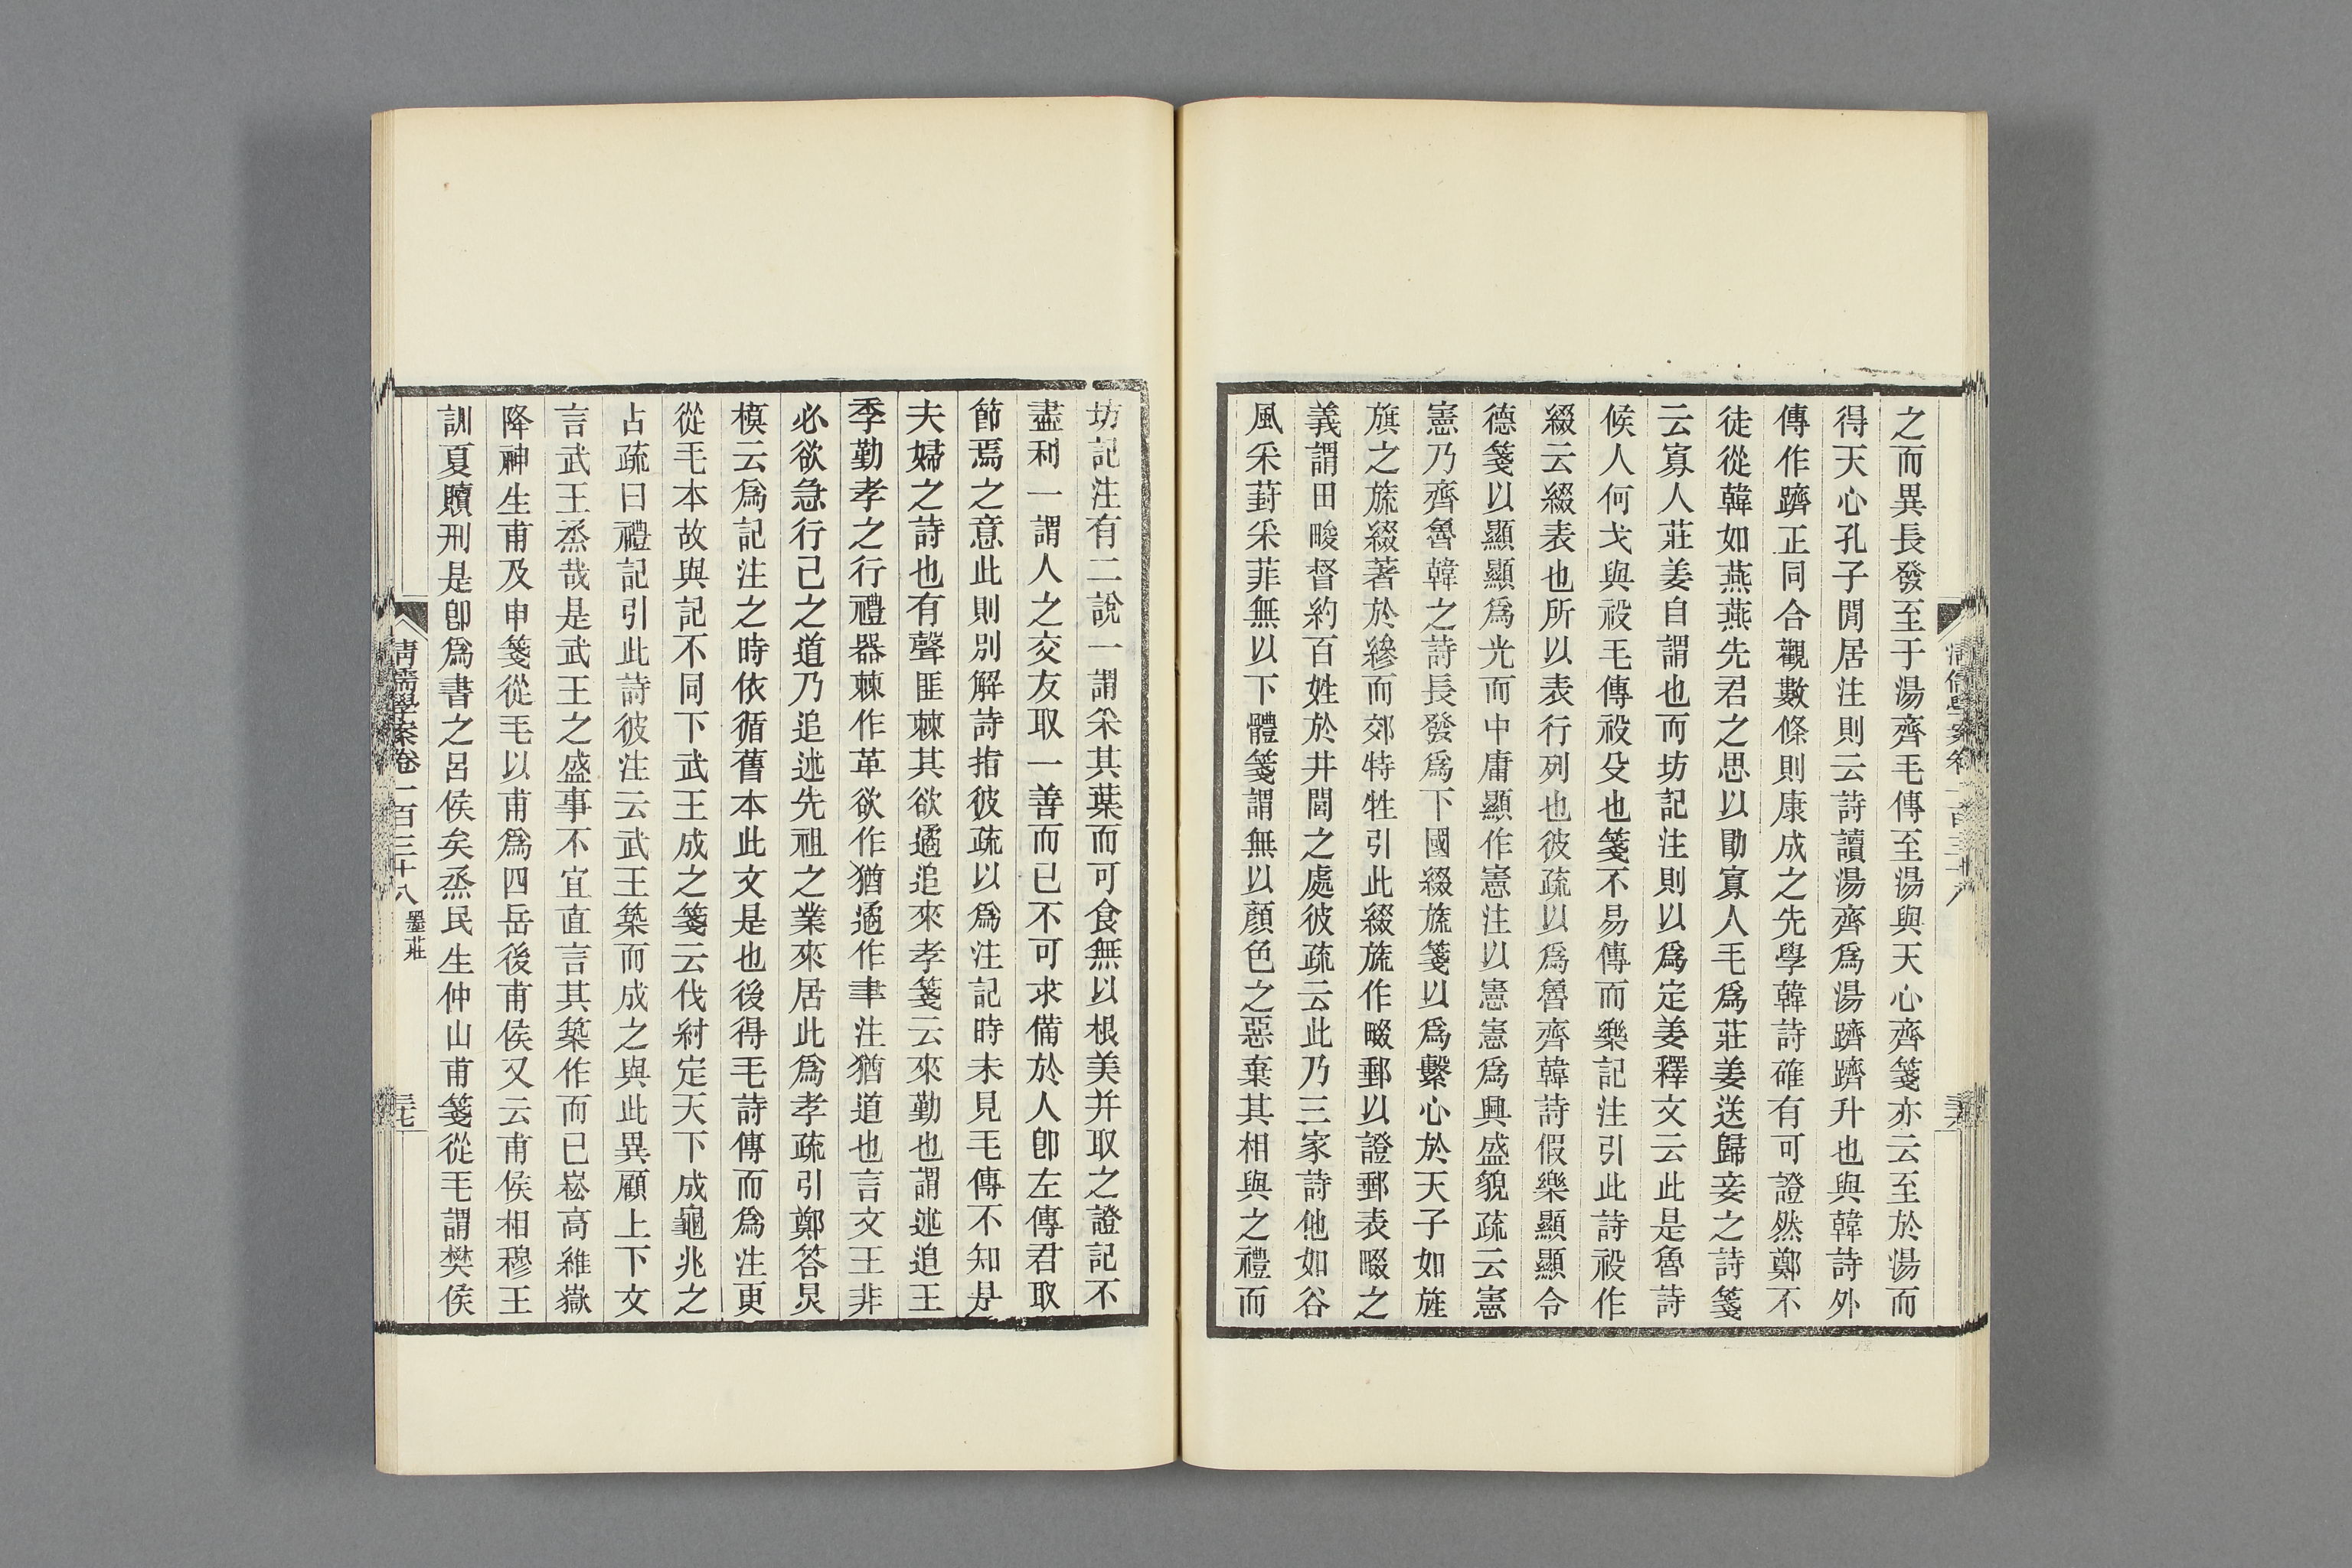 之而異長發至于湯齊毛傳至湯與天心齊箋亦云至於湯而
得天心孔子閒居注則云詩讀湯齊爲湯躋躋升也與韓詩外
傳作躋正同合觀數條則康成之先學韓詩確有可證然鄭不
徒從韓如燕燕先君之思以勖寡人毛爲莊姜送歸妾之詩箋
云寡人莊姜自謂也而坊記注則以爲定姜釋文云此是魯詩
候人何戈與祋毛傳祋殳也箋不易傳而樂記注引此詩祋作
綴云綴表也所以表行列也彼疏以爲魯齊韓詩假樂顯顯令
德箋以顯顯爲光而中庸顯作憲注以憲憲爲興盛貌疏云憲
憲乃齊魯韓之詩長發爲下國綴旒箋以爲繫心於天子如旌
旗之旒綴著於縿而郊特牲引此綴旒作畷郵以證郵表畷之
義謂田畯督約百姓於井閭之處彼疏云此乃三家詩他如谷
風采葑采菲無以下體箋謂無以顏色之惡棄其相與之禮而
坊記注有二說一謂采其葉而可食無以根美幷取之證記不
盡利一謂人之交友取一善而已不可求備於人卽左傳君取
節焉之意此則別解詩指彼疏以爲注記時未見毛傳不知是
夫婦之詩也有聲匪棘其欲遹追來孝箋云來勤也謂述追王
季勤孝之行禮器棘作革欲作猶遹作聿注猶道也言文王非
必欲急行己之道乃追述先祖之業來居此爲孝疏引鄭答炅
模云爲記注之時依循舊本此文是也後得毛詩傳而爲注更
從毛本故與記不同下武王成之箋云伐紂定天下成龜兆之
占疏曰禮記引此詩彼注云武王築而成之與此異顧上下文
言武王烝哉是武王之盛事不宜直言其築作而已崧高維嶽
降神生甫及申箋從毛以甫爲四岳後甫侯又云甫侯相穆王
訓夏贖刑是卽爲書之呂侯矣烝民生仲山甫箋從毛謂樊侯
清儒學案卷一百三十八 墨莊
三七